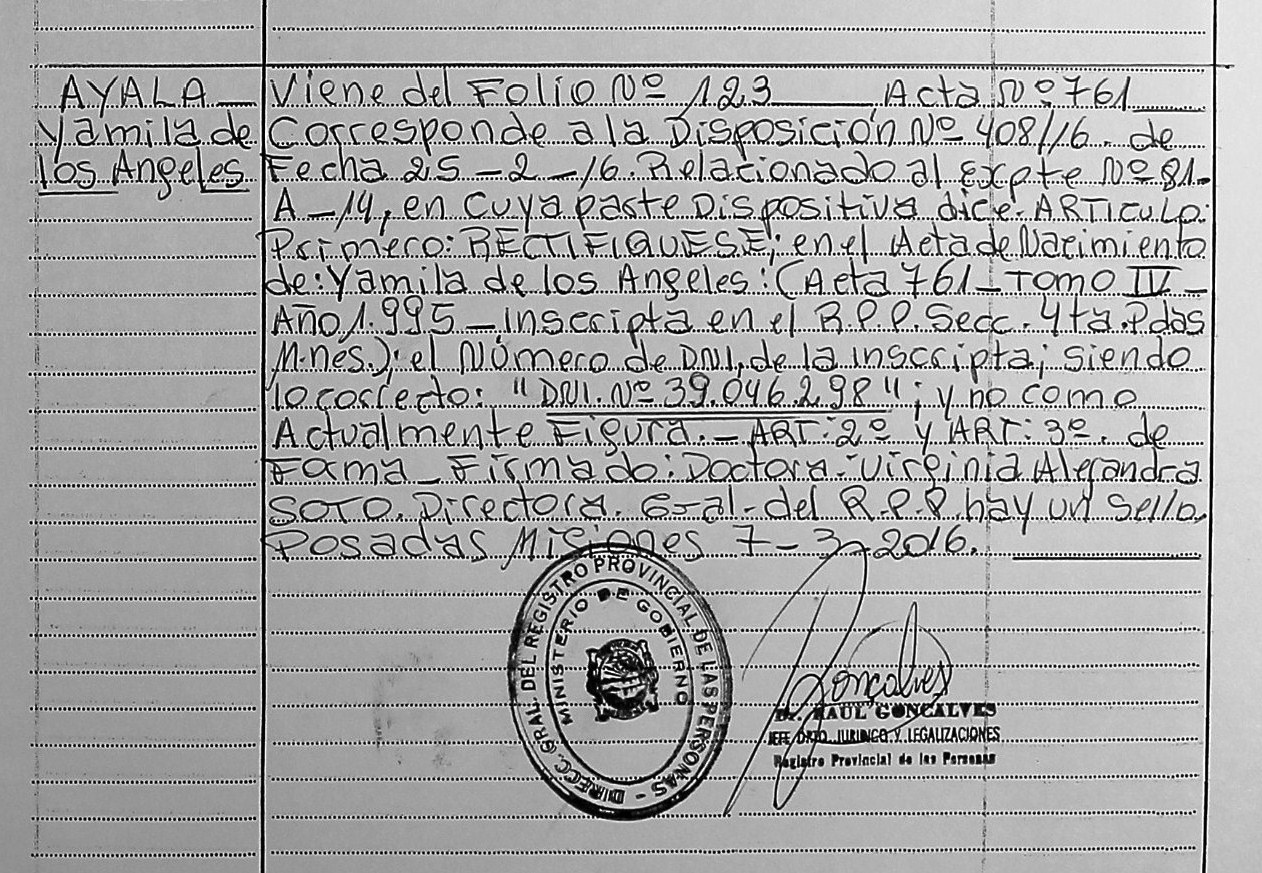 AYALA
Yamila de
los Angeles
Viene del Folio Nº 123 Acta Nº 761
Corresponde a la Disposición Nº 408/16. de
Fecha 25-2-16. Relacionado al Expte Nº 81-
A-14, en cuya parte Dispositiva dice: ARTICULO:
Primero: RECTIFIQUESE; en el Acta de Nacimiento
de: Yamila de los Angeles: (Acta 761-Tomo IV-
Año 1.995-inscripta en el R.P.P. Secc. 4ta. Pdas
Mnes.): el Número de DNI, de la inscripta; siendo
lo correcto: "DNI. Nº 39.046.298"; y no como
Actualmente Figura.- ART: 2º y ART: 3º. de
Forma Firmado: Doctora: Virginia Alejandra
SOTO. Directora. Gral. del R.P.P. hay un sello.
Posadas Misiones 7-3-2016.
DIRECC. GRAL. DEL REGISTRO PROVINCIAL DE LAS PERSONAS -
MINISTERIO DE GOBIERNO
Gonçalves
Dr. RAUL GONCALVES
JEFE DPTO. JURIDICO Y LEGALIZACIONES
Registro Provincial de las Personas